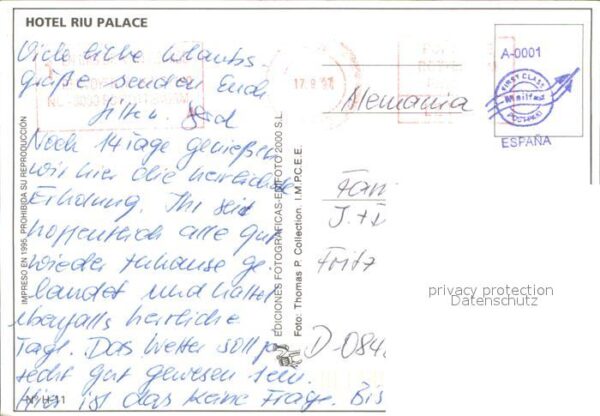 HOTEL RIU PALACE
Viele liebe Urlaubs-
grüße senden Euch
Noch 14 Tage genießen
wir hier die herrliche
Erholung. Ihr seid
hoffentlich alle gut
wieder zuhause ge-
landet und hattet
ebenfalls herrliche
Tage. Das Wetter soll ja
recht gut gewesen sein.
Hier ist das keine Frage. Bis
Nº H-11
IMPRESO EN 1995. PROHIBIDA SU REPRODUCCIÓN
EDICIONES FOTOGRAFICAS-EMFOTO 2000 S.L.
Foto: Thomas P. Collection. I.M.P.C.E.E.
17.9.97
A-0001
FIRST CLASS
Mailfast
ESPAÑA
Alemania
Fam
J. +
Fritz
D-084
privacy protection
Datenschutz